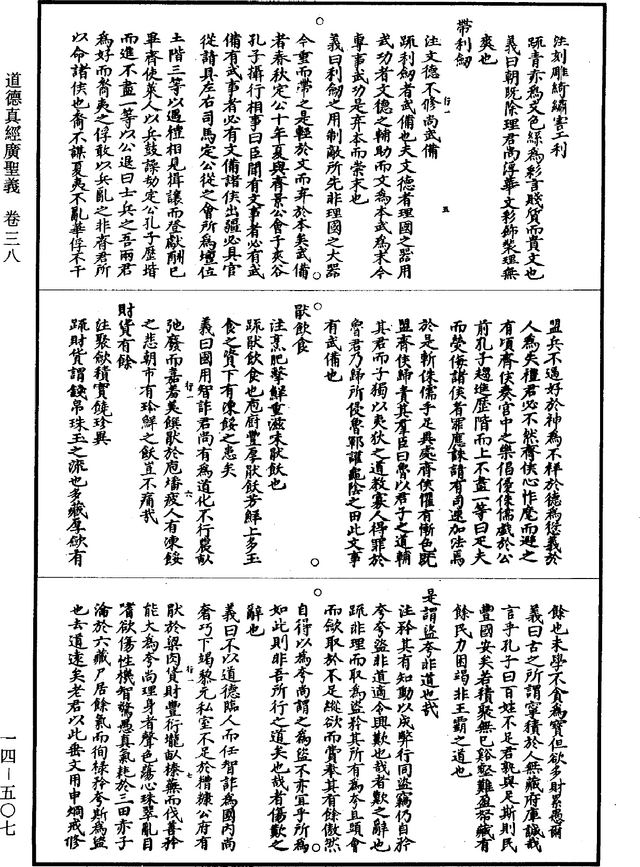 道德真經廣聖義　卷三八
一四－五〇七
注刻雕綺繡害工利
疏青赤為文色絲為彩言賤質而貴文也
義曰朝既除理君尚浮華文彩飾裝理無
爽也
帶利劒
注文德不修尚武備
疏利劒者武備也夫文德者理國之器用
武功者文德之輔助而文為本武為末今
專事武功是弃本而崇末也
義曰利劒之用制敵所先非理國之大器
今重而帶之是輕於文而弃於本矣武備
者春秋定公十年夏與齊景公會于夾谷
孔子攝行相事曰臣聞有文事者必有武
備有武事者必有文備諸侯出疆必具官
從請具左右司馬定公從之會所為壇位
土階三等以遇禮相見揖讓而登獻酬已
畢齊使萊人以兵鼓譟劫定公孔子歷堦
而進不盡一等以公退曰士兵之吾兩君
為好而裔夷之俘敢以兵亂之非齊君所
以命諸侯也裔不謀夏夷不亂華俘不干
盟兵不逼好於神為不祥於德為愆義於
人為失禮君必不然齊侯心怍麾而避之
有頃齊侯奏宮中之樂倡優侏儒戲於公
前孔子趨進歷階而上不盡一等曰足夫
而熒侮諸侯者罪應誅請有司速加法焉
於是斬侏儒手足異處齊侯懼有慚色旣
盟齊侯歸責其羣臣曰魯以君子之道輔
其君而子獨以夷狄之道教寡人得罪於
魯君乃歸所侵魯鄆讙龜陰之田此文事
有武備也
猒飲食
注烹肥擊鮮重滋味猒飫也
疏猒飲食也庖廚豐厚猒飫芳鮮上多玉
食之資下有凍餒之患矣
義曰國用智詐君尚有為道化不行農畝
弛廢而嘉肴美饌猒於庖墦疲人有凍餒
之悲朝市有珍鮮之飫豈不痛哉
財貨有餘
注聚斂積實饒珍異
疏財貨謂錢帛珠玉之流也多藏厚斂有
餘也未學不食為寶但欲多財累愚爾
義曰古之所謂寧積於人無藏府庫誠哉
言乎孔子曰百姓不足君孰與足斯則民
豐國安矣若積聚無已谿壑難盈帑藏有
餘民力困竭非王霸之道也
是謂盜夸非道也哉
注矜其有知動以成弊行同盜竊仍自矜
夸夸盜非道適令興歎也哉者歎之辭也
疏非理而取為盜矜其所有為夸且頭會
而歛取於不足縱欲而賞奉其有餘傲然
自得以為夸尚謂之為盜不亦宜乎所為
如此則非吾所行之道矣也哉者傷歎之
辭也
義曰不以道德臨人而任智詐為國內尚
奢巧下竭黎元私室不足於糟糠公府有
猒於粱肉貨財豐衍壠畝榛蕪而伐善矜
能大為夸尚理身者聲色蕩心珠翠亂目
嗜欲傷性機智驚愚真氣耗於三田赤子
淪於六藏尸居餘氣而徇祿矜夸斯為盜
也去道遠矣老君以此垂文用申炯戒修